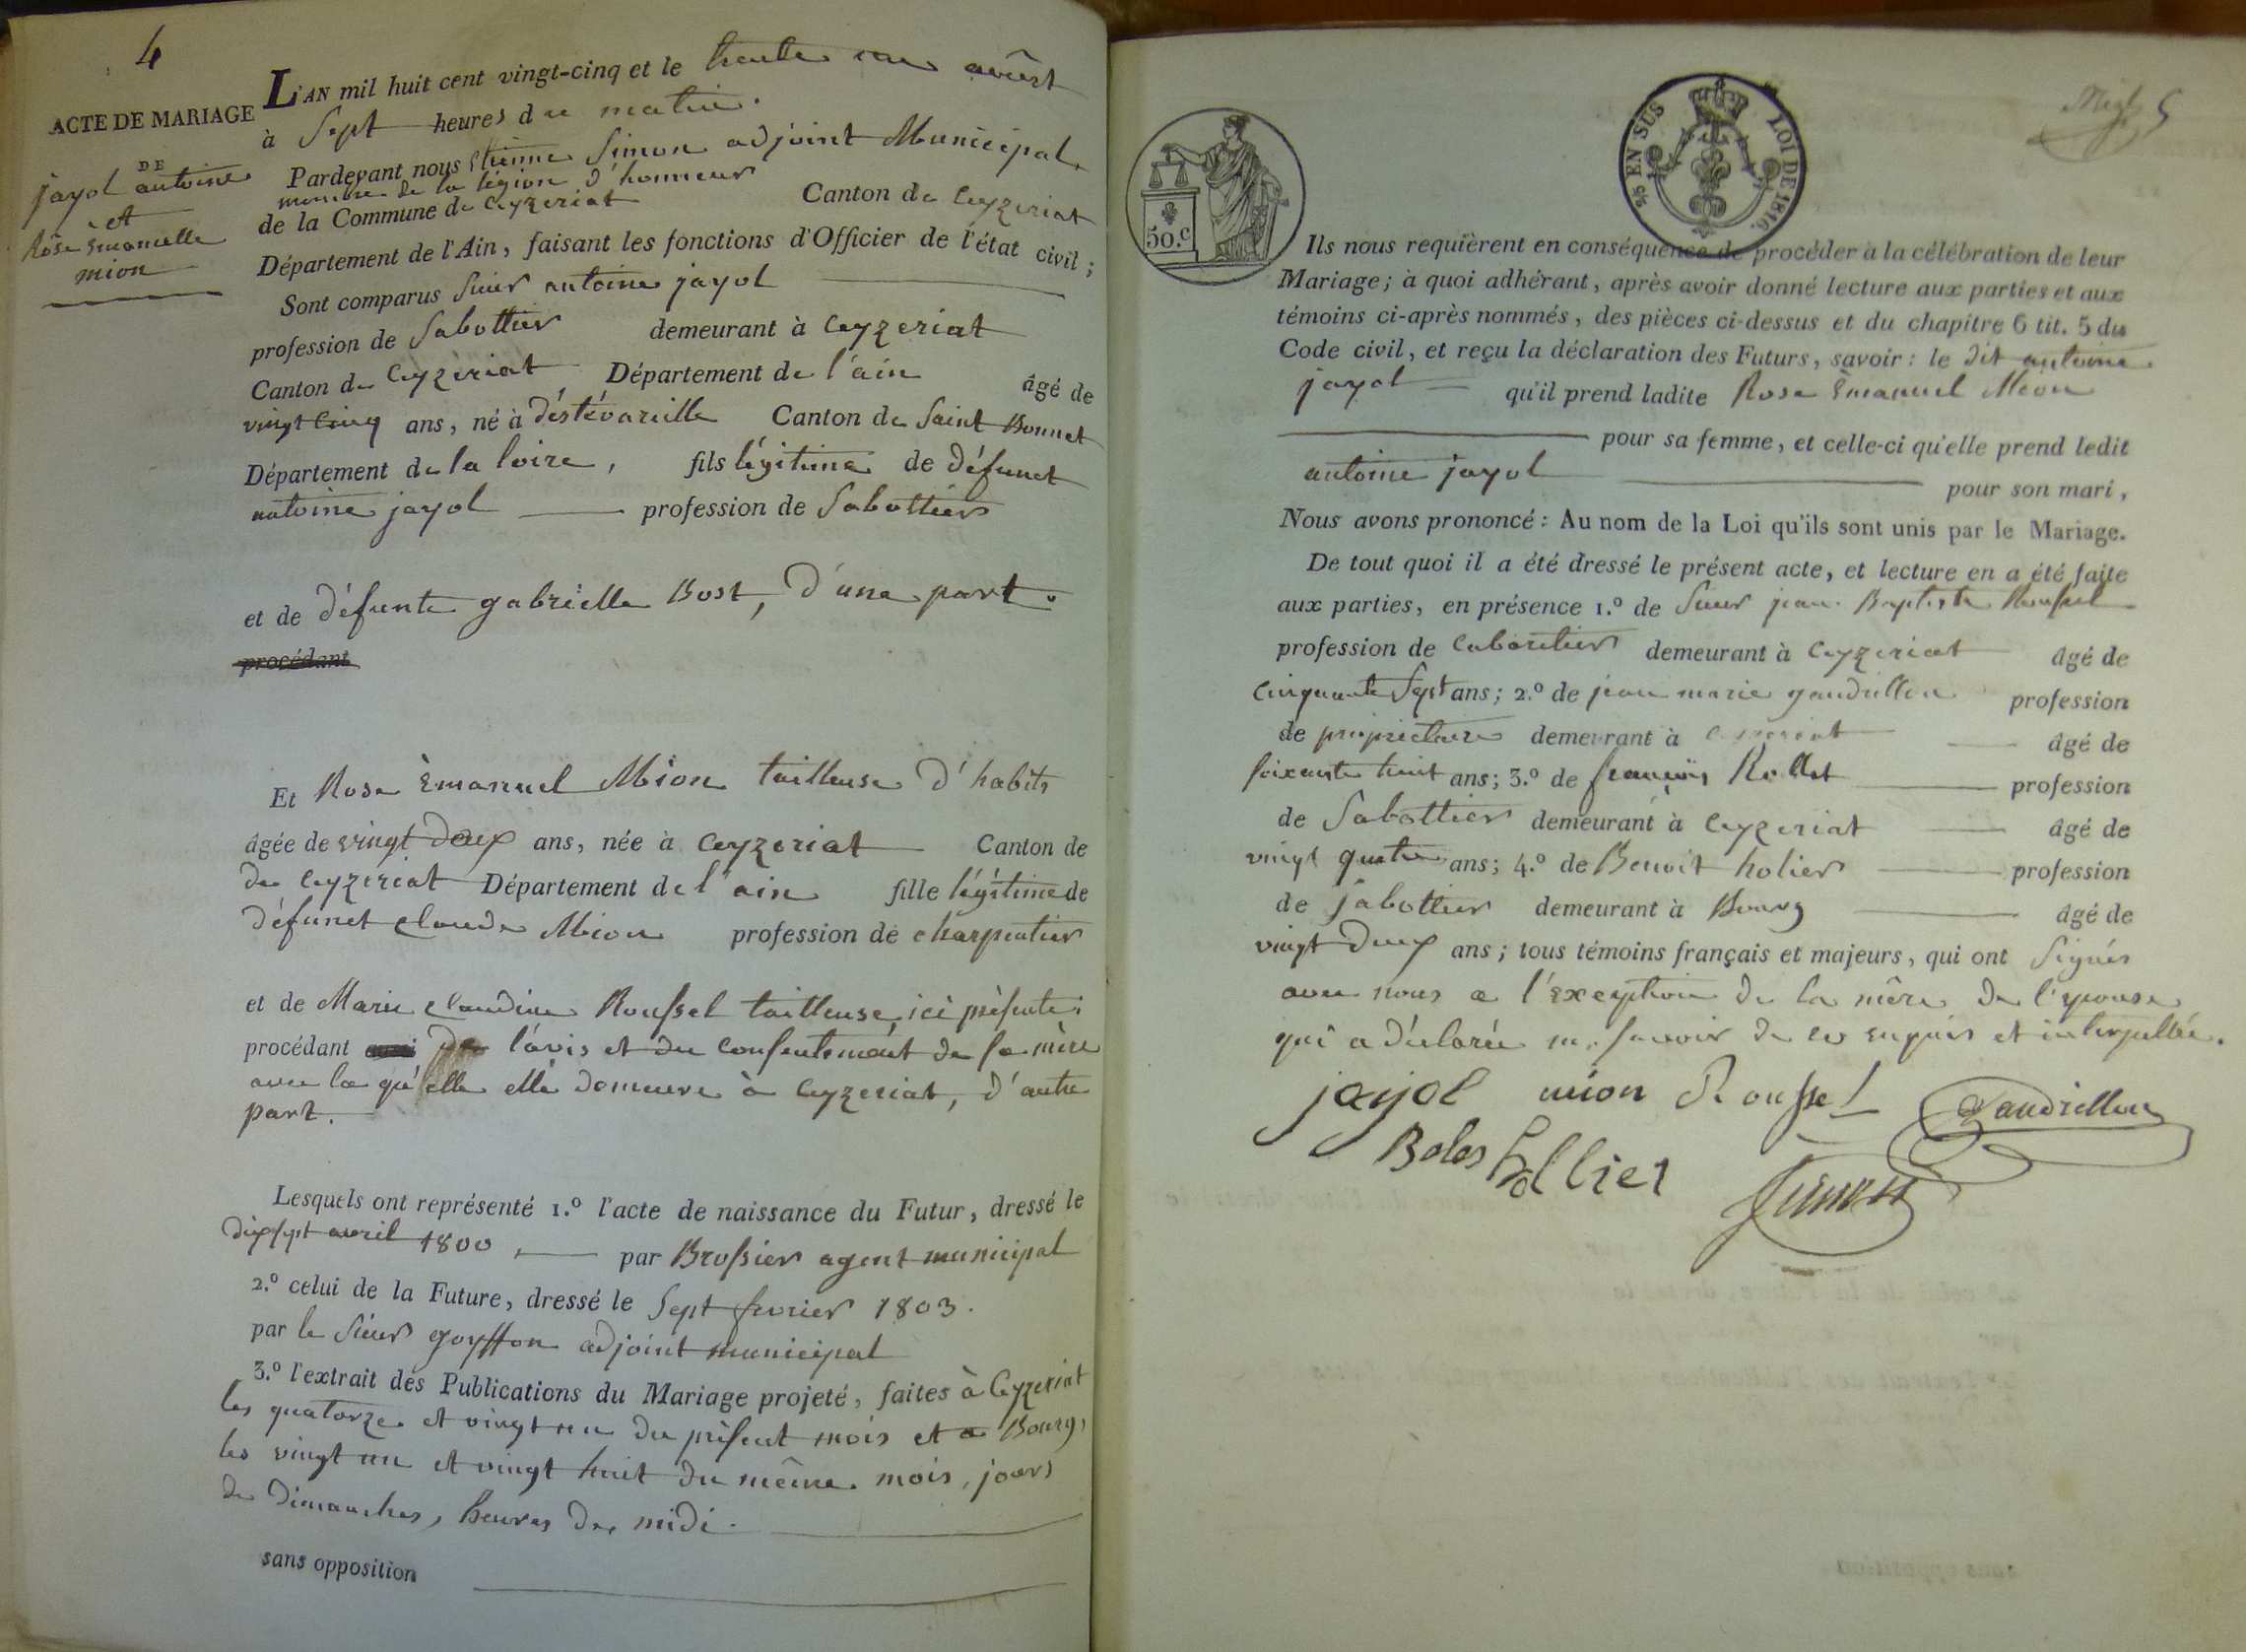 4
ACTE DE MARIAGE
DE
jayol antoine
et
Rôse Èmanuelle
mion
L'AN mil huit cent vingt-cinq et le trente un aoûst
à Sept heures du matin.
Pardevant nous Etienne Simon adjoint Municipal,
membre de la légion d'honneur
de la Commune de Ceyzeriat Canton de Ceyzeriat
Département de l'Ain, faisant les fonctions d'Officier de l'état civil;
Sont comparus Sieur antoine jayol
profession de Sabottier demeurant à Ceyzeriat
Canton de Ceyzèriat, Département de l'ain âgé de
vingt Cinq ans, né à d'éstévareille Canton de Saint Bonnet
Département de la loire, fils légitime de défunct
antoine jayol profession de Sabottier
et de défunte gabrielle Bost, d'une part.
procédant
Et Rose Èmanuel Mion tailleuse d'habits
âgée de vingt deux ans, née à Ceyzeriat Canton de
de Ceyzeriat Département de l'ain fille légitime de
défunct claude Mion profession de charpentier
et de Marie claudine Roussel tailleuse, ici présente;
procédant de l'avis et du consentement de sa mère
avec la qu'elle elle demeure à Ceyzeriat, d'autre
part.
Lesquels ont représenté 1.º l'acte de naissance du Futur, dressé le
dixsept avril 1800, par Brossier agent municipal
2.º celui de la Future, dressé le Sept fevrier 1803.
par le Sieur goyffon adjoint municipal
3.º l'extrait des Publications du Mariage projeté, faites à Ceyzeriat
les quatorze et vingt un du présent mois et a Bourg,
les vingt un et vingt huit du même mois, jours
de Dimanches, heures de midi.
sans opposition
EN SUS LOI DE 1816.
50.c
5
Ils nous requièrent en conséquence de procéder à la célébration de leur
Mariage; à quoi adhérant, après avoir donné lecture aux parties et aux
témoins ci-après nommés, des pièces ci-dessus et du chapitre 6 tit. 5 du
Code civil, et reçu la déclaration des Futurs, savoir: le dit antoine
jayol qu'il prend ladite Rose Èmanuel Mion
pour sa femme, et celle-ci qu'elle prend ledit
antoine jayol pour son mari,
Nous avons prononcé: Au nom de la Loi qu'ils sont unis par le Mariage.
De tout quoi il a été dressé le présent acte, et lecture en a été faite
aux parties, en présence 1.º de Sieur jean Baptiste Roussel
profession de Cabaretier demeurant à Ceyzeriat âgé de
Cinquante Sept ans; 2.º de jean marie gaudrillon profession
de propriétaire demeurant à Ceyzeriat âgé de
soixante huit ans; 3.º de françois Rollet profession
de Sabottier demeurant à Ceyzeriat âgé de
vingt quatre ans; 4.º de Benoit holier profession
de sabottier demeurant à Bourg âgé de
vingt deux ans; tous témoins français et majeurs, qui ont Signés
avec nous a l'éxception de la mère de l'épouse
qui a déclarée ne savoir de ce enquis et interpellée.
jayol mion Roussel Gaudrillon
hollier
Simon